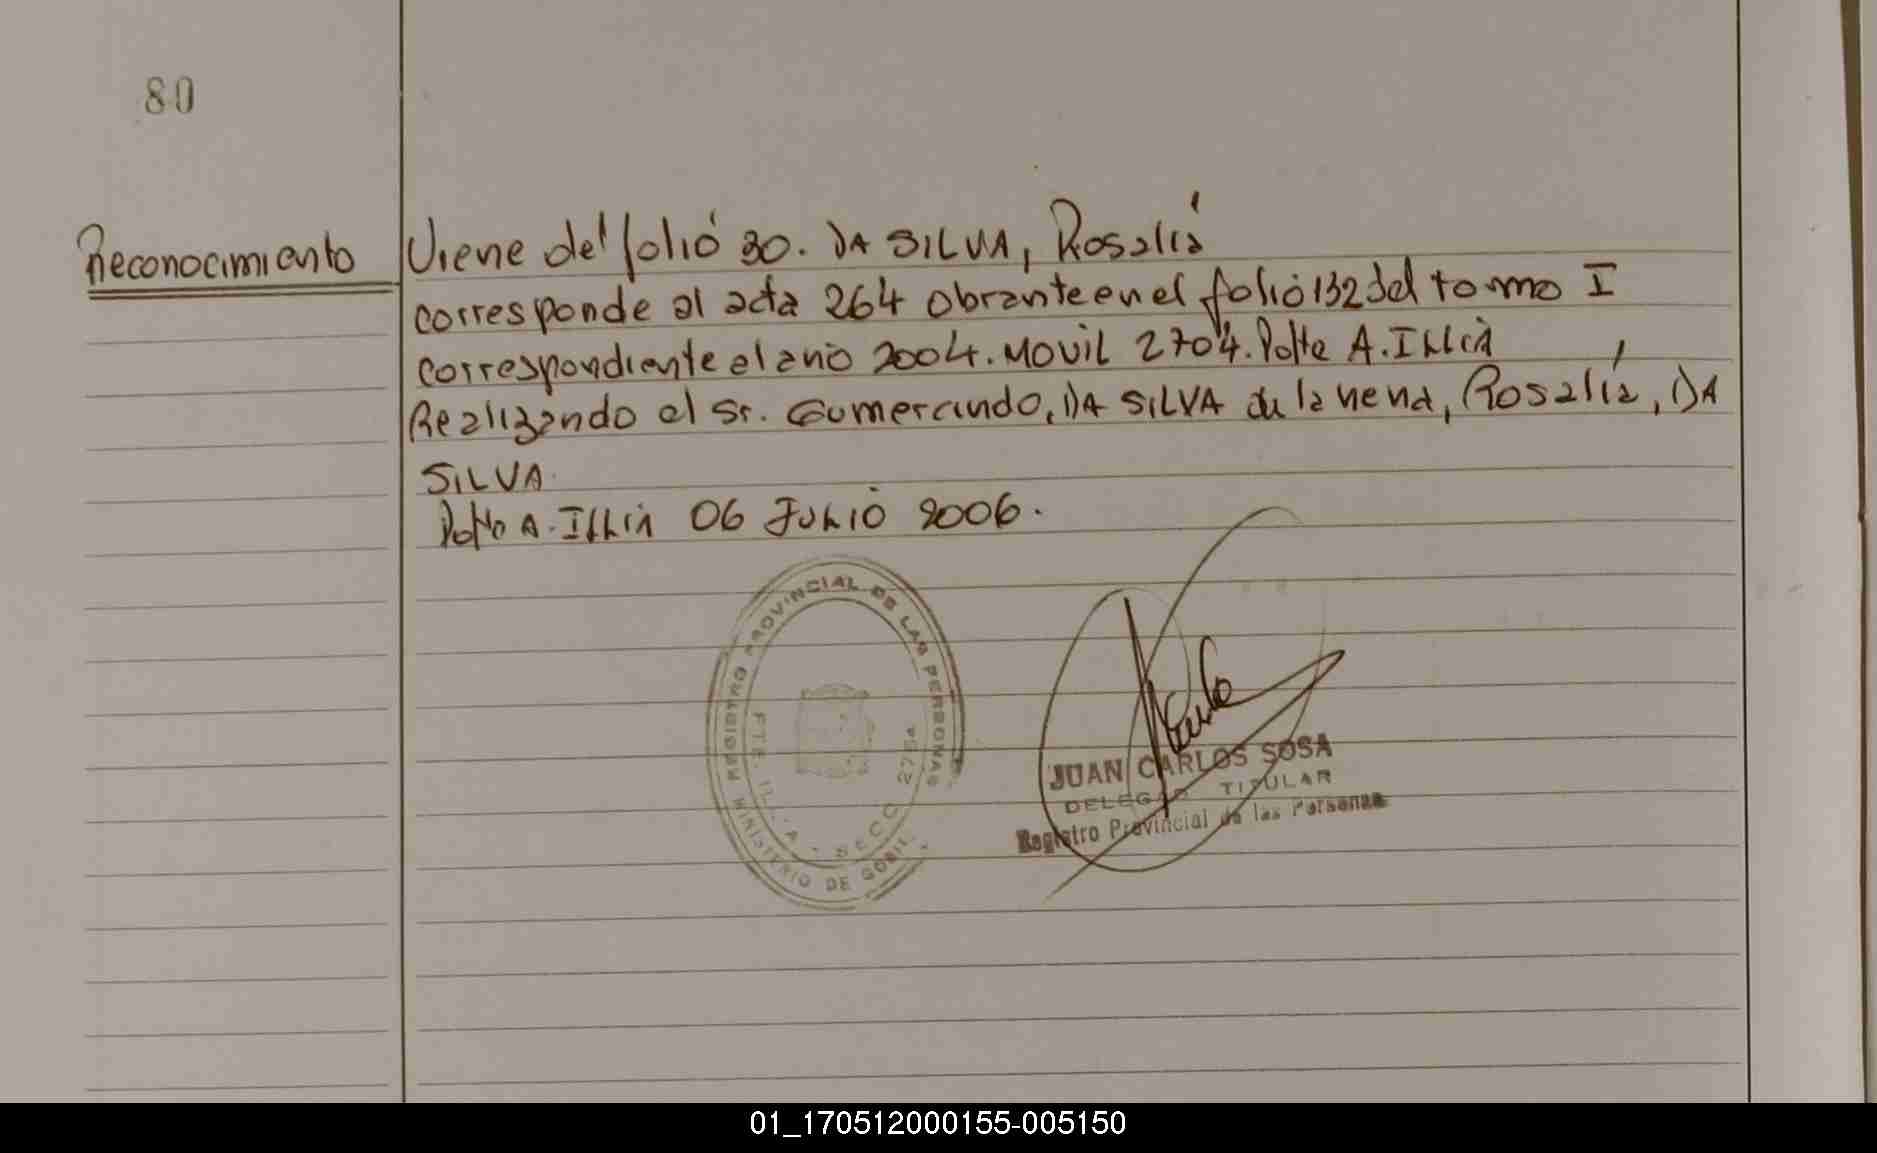 80
Reconocimiento
Viene del folio 30. DA SILVA, Rosalía
corresponde al acta 264 obrante en el folio 132 del tomo I
correspondiente el año 2004. MOVIL 2704. Pdte A. ILLIA
Realizando el Sr. Gumercindo, DA SILVA de la nena, Rosalía, DA
SILVA.
Pdte A. ILLIA 06 JULIO 2006.
REGISTRO PROVINCIAL DE LAS PERSONAS
MINISTERIO DE GOBI
SECC. 2754
JUAN CARLOS SOSA
TITULAR
Registro Provincial de las Personas
01_170512000155-005150